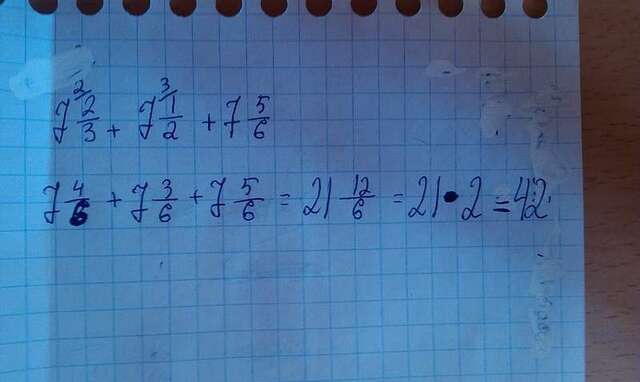 7 ²2/3 + 7 ³1/2 + 7 5/6
7 4/6 + 7 3/6 + 7 5/6 = 21 12/6 = 21 • 2 = 42